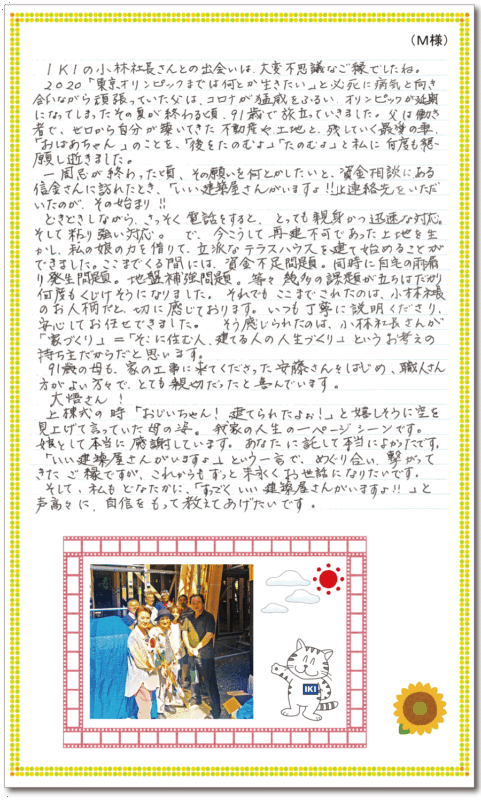 （M様）
IKIの小林社長さんとの出会いは、大変不思議なご縁でしたね。
2020「東京オリンピックまでは何とか生きたい」と必死に病気と向き
合いながら頑張っていた父は、コロナが猛威をふるい、オリンピックが延期
になってしまったその夏が終わる頃、91歳で旅立っていきました。父は働き
者で、ゼロから自分が築いてきた不動産や土地と、残していく最愛の妻、
「おばあちゃん」のことを、「後をたのむよ」「たのむよ」と私に何度も懇
願し逝きました。
一周忌が終わった頃、その願いを何とかしたいと、資金相談にある
信金さんに訪れたとき、「いい建築屋さんがいますよ!!」と連絡先をいただ
いたのが、その始まり!!
どきどきしながら、さっそく電話をすると、とっても親身かつ迅速な対応。
そして粘り強い対応。で、今こうして再建不可であった土地を生
かし、私の娘の力を借りて、立派なテラスハウスを建て始めることが
できました。ここまでくる間には、資金不足問題。同時に自宅の雨漏
り発生問題。地盤補強問題。等々幾多の課題が立ちはだかり
何度もくじけそうになりました。それでもここまでこれたのは、小林社長
のお人柄だと、切に感じております。いつも丁寧に説明くださり、
安心してお任せできました。そう感じられたのは、小林社長さんが
「家づくり」=「そこに住む人、建てる人の人生づくり」というお考えの
持ち主だからだと思います。
91歳の母も、家の工事に来てくださった安藤さんをはじめ、職人さん
方がよい方々で、とても親切だったと喜んでいます。
大悟さん!
上棟式の時「おじいちゃん!建てられたよぉ!」と嬉しそうに空を
見上げて言っていた母の姿。我家の人生の一ページシーンです。
娘として本当に感謝しています。あなたに託して本当によかったです。
「いい建築屋さんがいますよ」という一言で、めぐり合い、繋がって
きたご縁ですが、これからもずっと末永くお世話になりたいです。
そして、私もどなたかに、「すっごくいい建築屋さんがいますよ!!」と
声高々に、自信をもって教えてあげたいです。
IKI